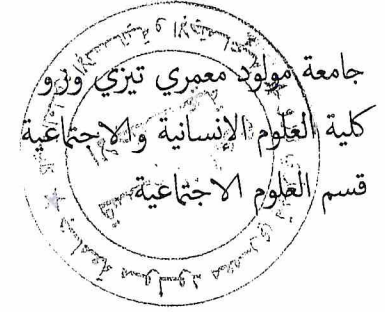 جامعة مولود معمري تيزي وزو
كلية العلوم الإنسانية والاجتماعية
قسم العلوم الاجتماعية